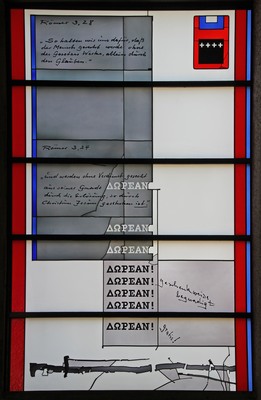 Römer 3,28
„So halten wir nun dafür, daß
der Mensch gerecht werde ohne
des Gesetzes Werke, allein durch
den Glauben."
Römer 3,24
„Und werden ohne Verdienst gerecht
aus seiner Gnade ΔΩΡΕΑΝ!
durch die Erlösung, so durch
Christum Jesum geschehen ist."
ΔΩΡΕΑΝ!
ΔΩΡΕΑΝ!
ΔΩΡΕΑΝ!
ΔΩΡΕΑΝ!
ΔΩΡΕΑΝ!
ΔΩΡΕΑΝ!
ΔΩΡΕΑΝ!
ΔΩΡΕΑΝ!
geschenkweise
begnadigt